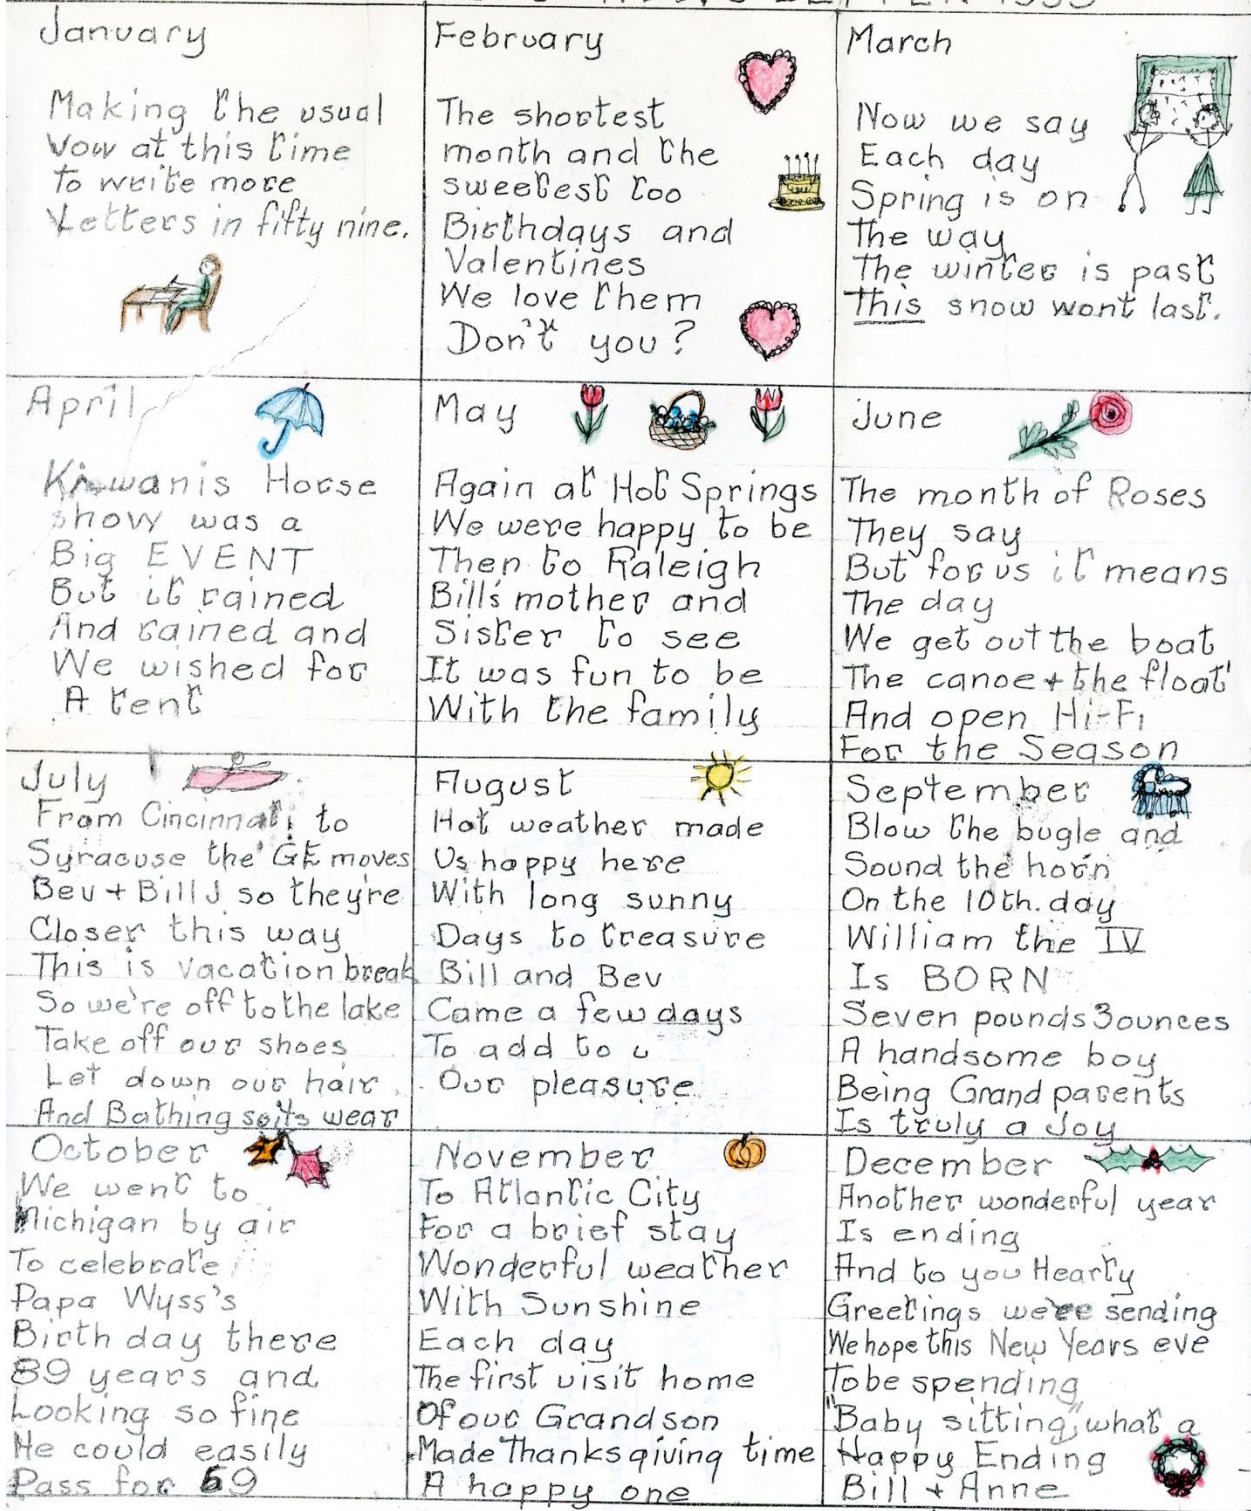 NEWSLETTER 1959
January
Making the usual
Vow at this time
To write more
Letters in fifty nine.
February
The shortest
month and the
sweetest too
Birthdays and
Valentines
We love them
Don't you?
March
Now we say
Each day
Spring is on
The way
The winter is past
This snow wont last.
April
Kiwanis Horse
show was a
Big EVENT
But it rained
And rained and
We wished for
A tent
May
Again at Hot Springs
We were happy to be
Then to Raleigh
Bill's mother and
Sister to see
It was fun to be
With the family
June
The month of Roses
They say
But for us it means
The day
We get out the boat
The canoe + the float
And open Hi-Fi
For the Season
July
From Cincinnati to
Syracuse the GE moves
Bev + Bill J so they're
Closer this way
This is vacation break
So we're off to the lake
Take off our shoes
Let down our hair
And Bathing suits wear
August
Hot weather made
Us happy here
With long sunny
Days to treasure
Bill and Bev
Came a few days
To add to
Our pleasure
September
Blow the bugle and
Sound the horn
On the 10th. day
William the IV
Is BORN
Seven pounds 3 ounces
A handsome boy
Being Grand parents
Is truly a Joy
October
We went to
Michigan by air
To celebrate
Papa Wyss's
Birth day there
89 years and
Looking so fine
He could easily
Pass for 69
November
To Atlantic City
For a brief stay
Wonderful weather
With Sunshine
Each day
The first visit home
Of our Grandson
Made Thanksgiving time
A happy one
December
Another wonderful year
Is ending
And to you Hearty
Greetings we're sending
We hope this New Years eve
To be spending
"Baby sitting" what a
Happy Ending
Bill + Anne